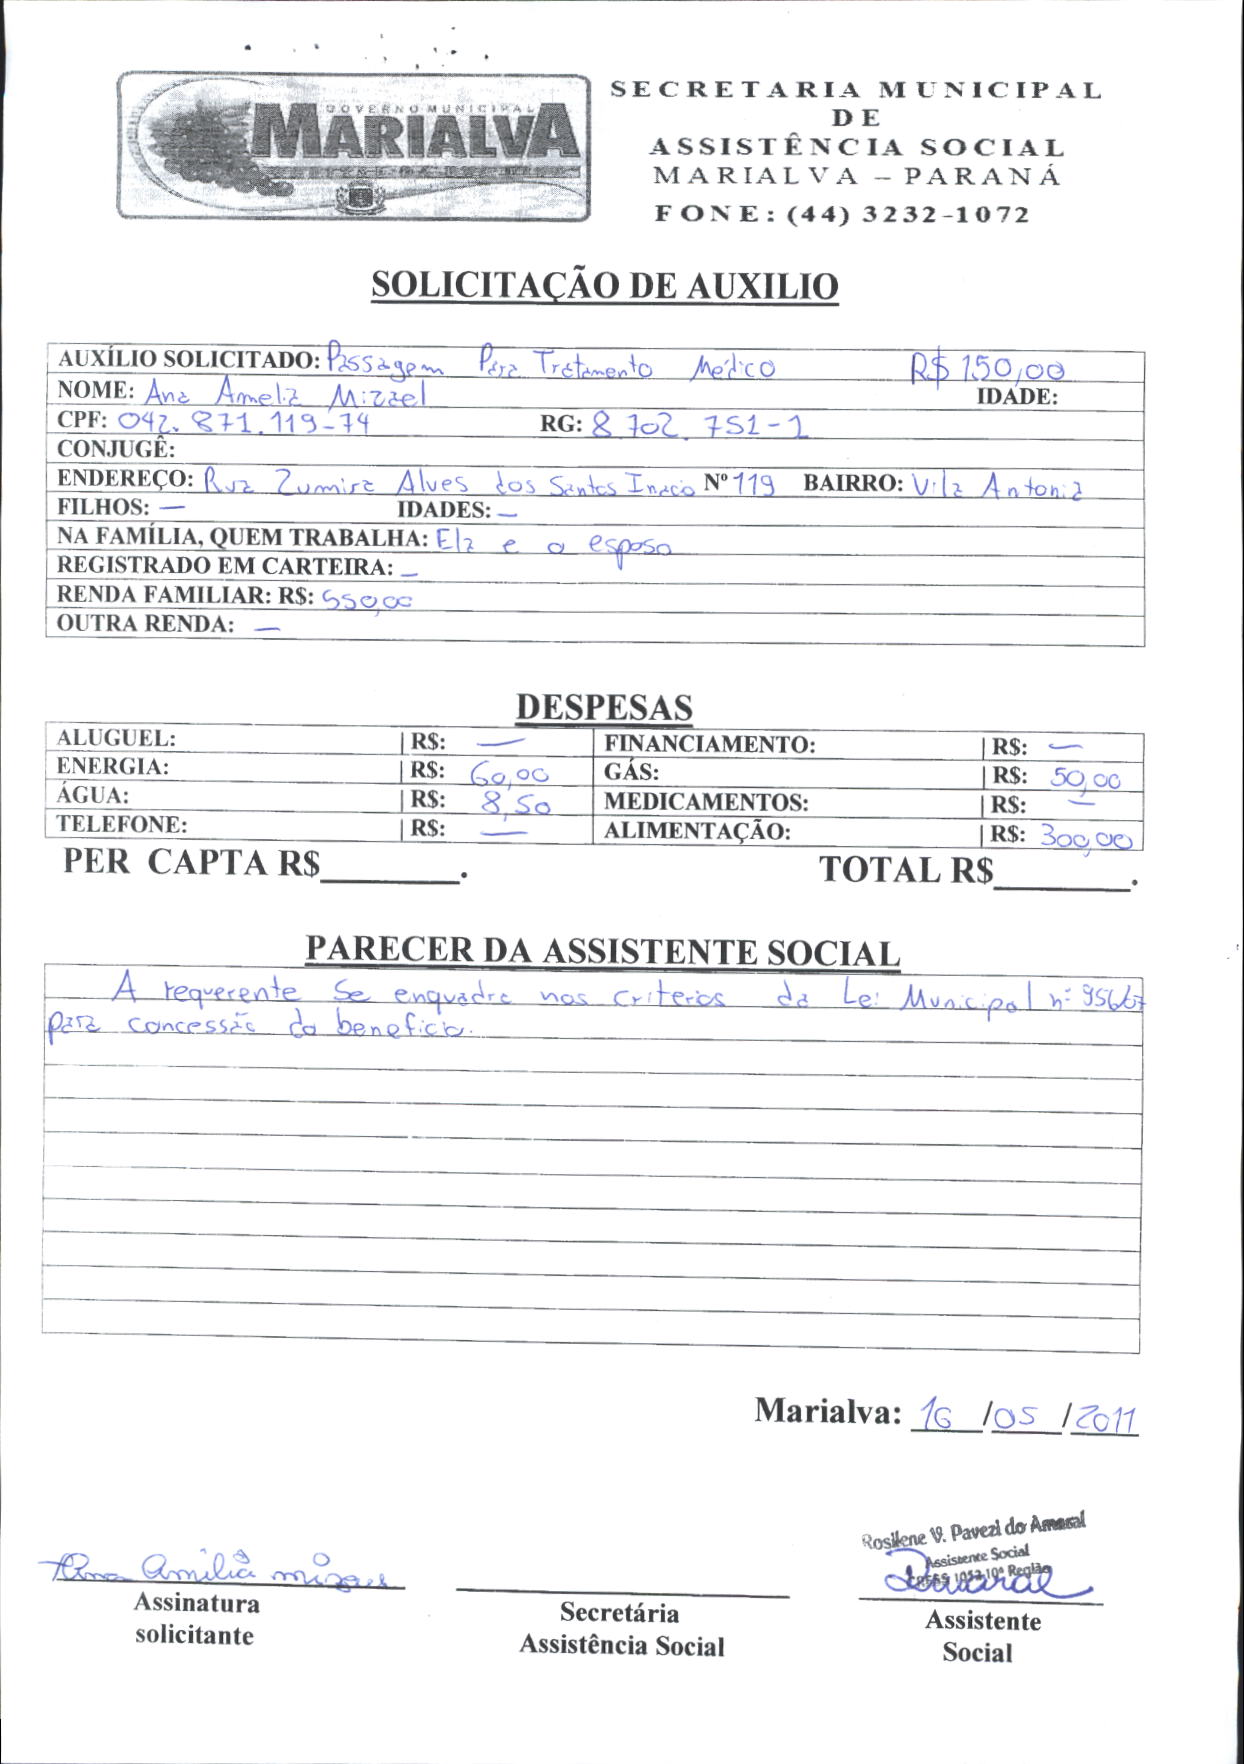 GOVERNO MUNICIPAL
MARIALVA
SECRETARIA MUNICIPAL
DE
ASSISTÊNCIA SOCIAL
MARIALVA – PARANÁ
FONE: (44) 3232-1072
SOLICITAÇÃO DE AUXILIO
AUXÍLIO SOLICITADO: Passagem Para Tratamento Médico R$ 150,00
NOME: Ana Amelia Mizael IDADE:
CPF: 042.871.119-74 RG: 8 702.751-1
CONJUGÊ:
ENDEREÇO: Rua Zumira Alves dos Santos Inacio Nº 119 BAIRRO: Vila Antonia
FILHOS: — IDADES: —
NA FAMÍLIA, QUEM TRABALHA: Ela e o esposo
REGISTRADO EM CARTEIRA: —
RENDA FAMILIAR: R$: 550,00
OUTRA RENDA: —
DESPESAS
ALUGUEL: | R$: — FINANCIAMENTO: | R$: —
ENERGIA: | R$: 60,00 GÁS: | R$: 50,00
ÁGUA: | R$: 8,50 MEDICAMENTOS: | R$: —
TELEFONE: | R$: — ALIMENTAÇÃO: | R$: 300,00
PER CAPTA R$________. TOTAL R$________.
PARECER DA ASSISTENTE SOCIAL
A requerente se enquadra nos criterios da Lei Municipal nº
para concessão do beneficio.
Marialva: 16 /05 /2011
Rosilene V. Pavezi do Amaral
Assistente Social
CRESS 10ª Região
Ana Amilia
Amaral
Assinatura Secretária Assistente
solicitante Assistência Social Social